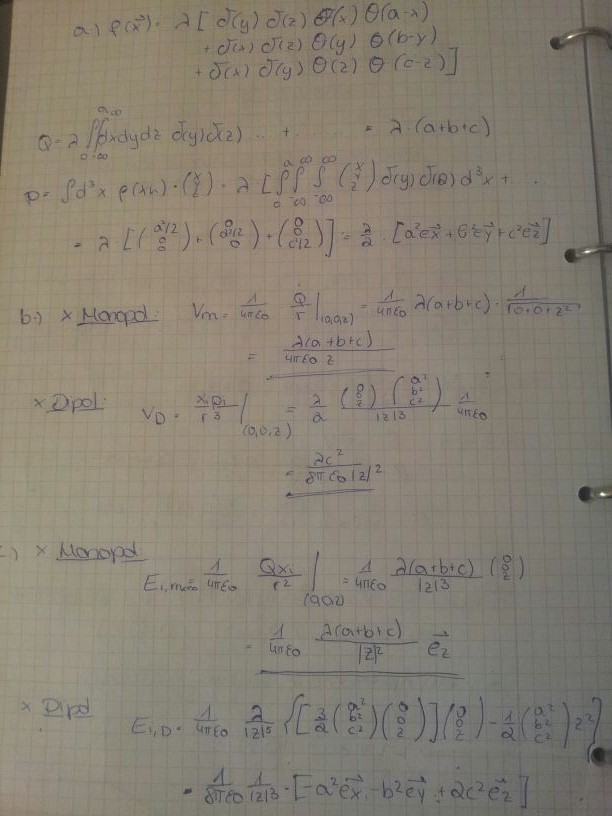 a.) ρ(x⃗) = λ [ δ(y) δ(z) Θ(x) Θ(a-x)
+ δ(x) δ(z) Θ(y) Θ(b-y)
+ δ(x) δ(y) Θ(z) Θ(c-z) ]
Q = λ ∫₀ᵃ ∫_{-∞}^{∞} dxdydz δ(y)δ(z) ... + ....... = λ·(a+b+c)
p = ∫d³x ρ(xn)·(x y z) = λ [ ∫₀ᵃ ∫_{-∞}^{∞} ∫_{-∞}^{∞} (x y z) δ(y) δ(z) d³x + ...
= λ · [ (a²/2 0 0) + (0 b²/2 0) + (0 0 c²/2) ] = λ/2 · [a²e⃗x + b²e⃗y + c²e⃗z]
b.) x Monopol: Vm = 1/4πε0 Q/r |(0,0,z) = 1/4πε0 λ(a+b+c) · 1/√0+0+z²
= λ(a+b+c)/4πε0 z
x Dipol: VD = xipi/r³ |(0,0,z) = λ/2 (0 0 z) (a² b² c²)/|z|3 1/4πε0
= λc²/8πε0 |z|²
c.) x Monopol Ei,mono = 1/4πε0 Qxi/r² |(0,0,z) = 1/4πε0 λ(a+b+c)/|z|3 (0 0 z)
= 1/4πε0 λ(a+b+c)/|z|² e⃗z
x Dipol Ei,D = 1/4πε0 λ/|z|⁵ { [ 3/2 (a² b² c²) (0 0 z) ] (0 0 z) - 1/2 (a² b² c²) z² }
= 1/8πε0 1/|z|3 · [-a²e⃗x - b²e⃗y + 2c²e⃗z]